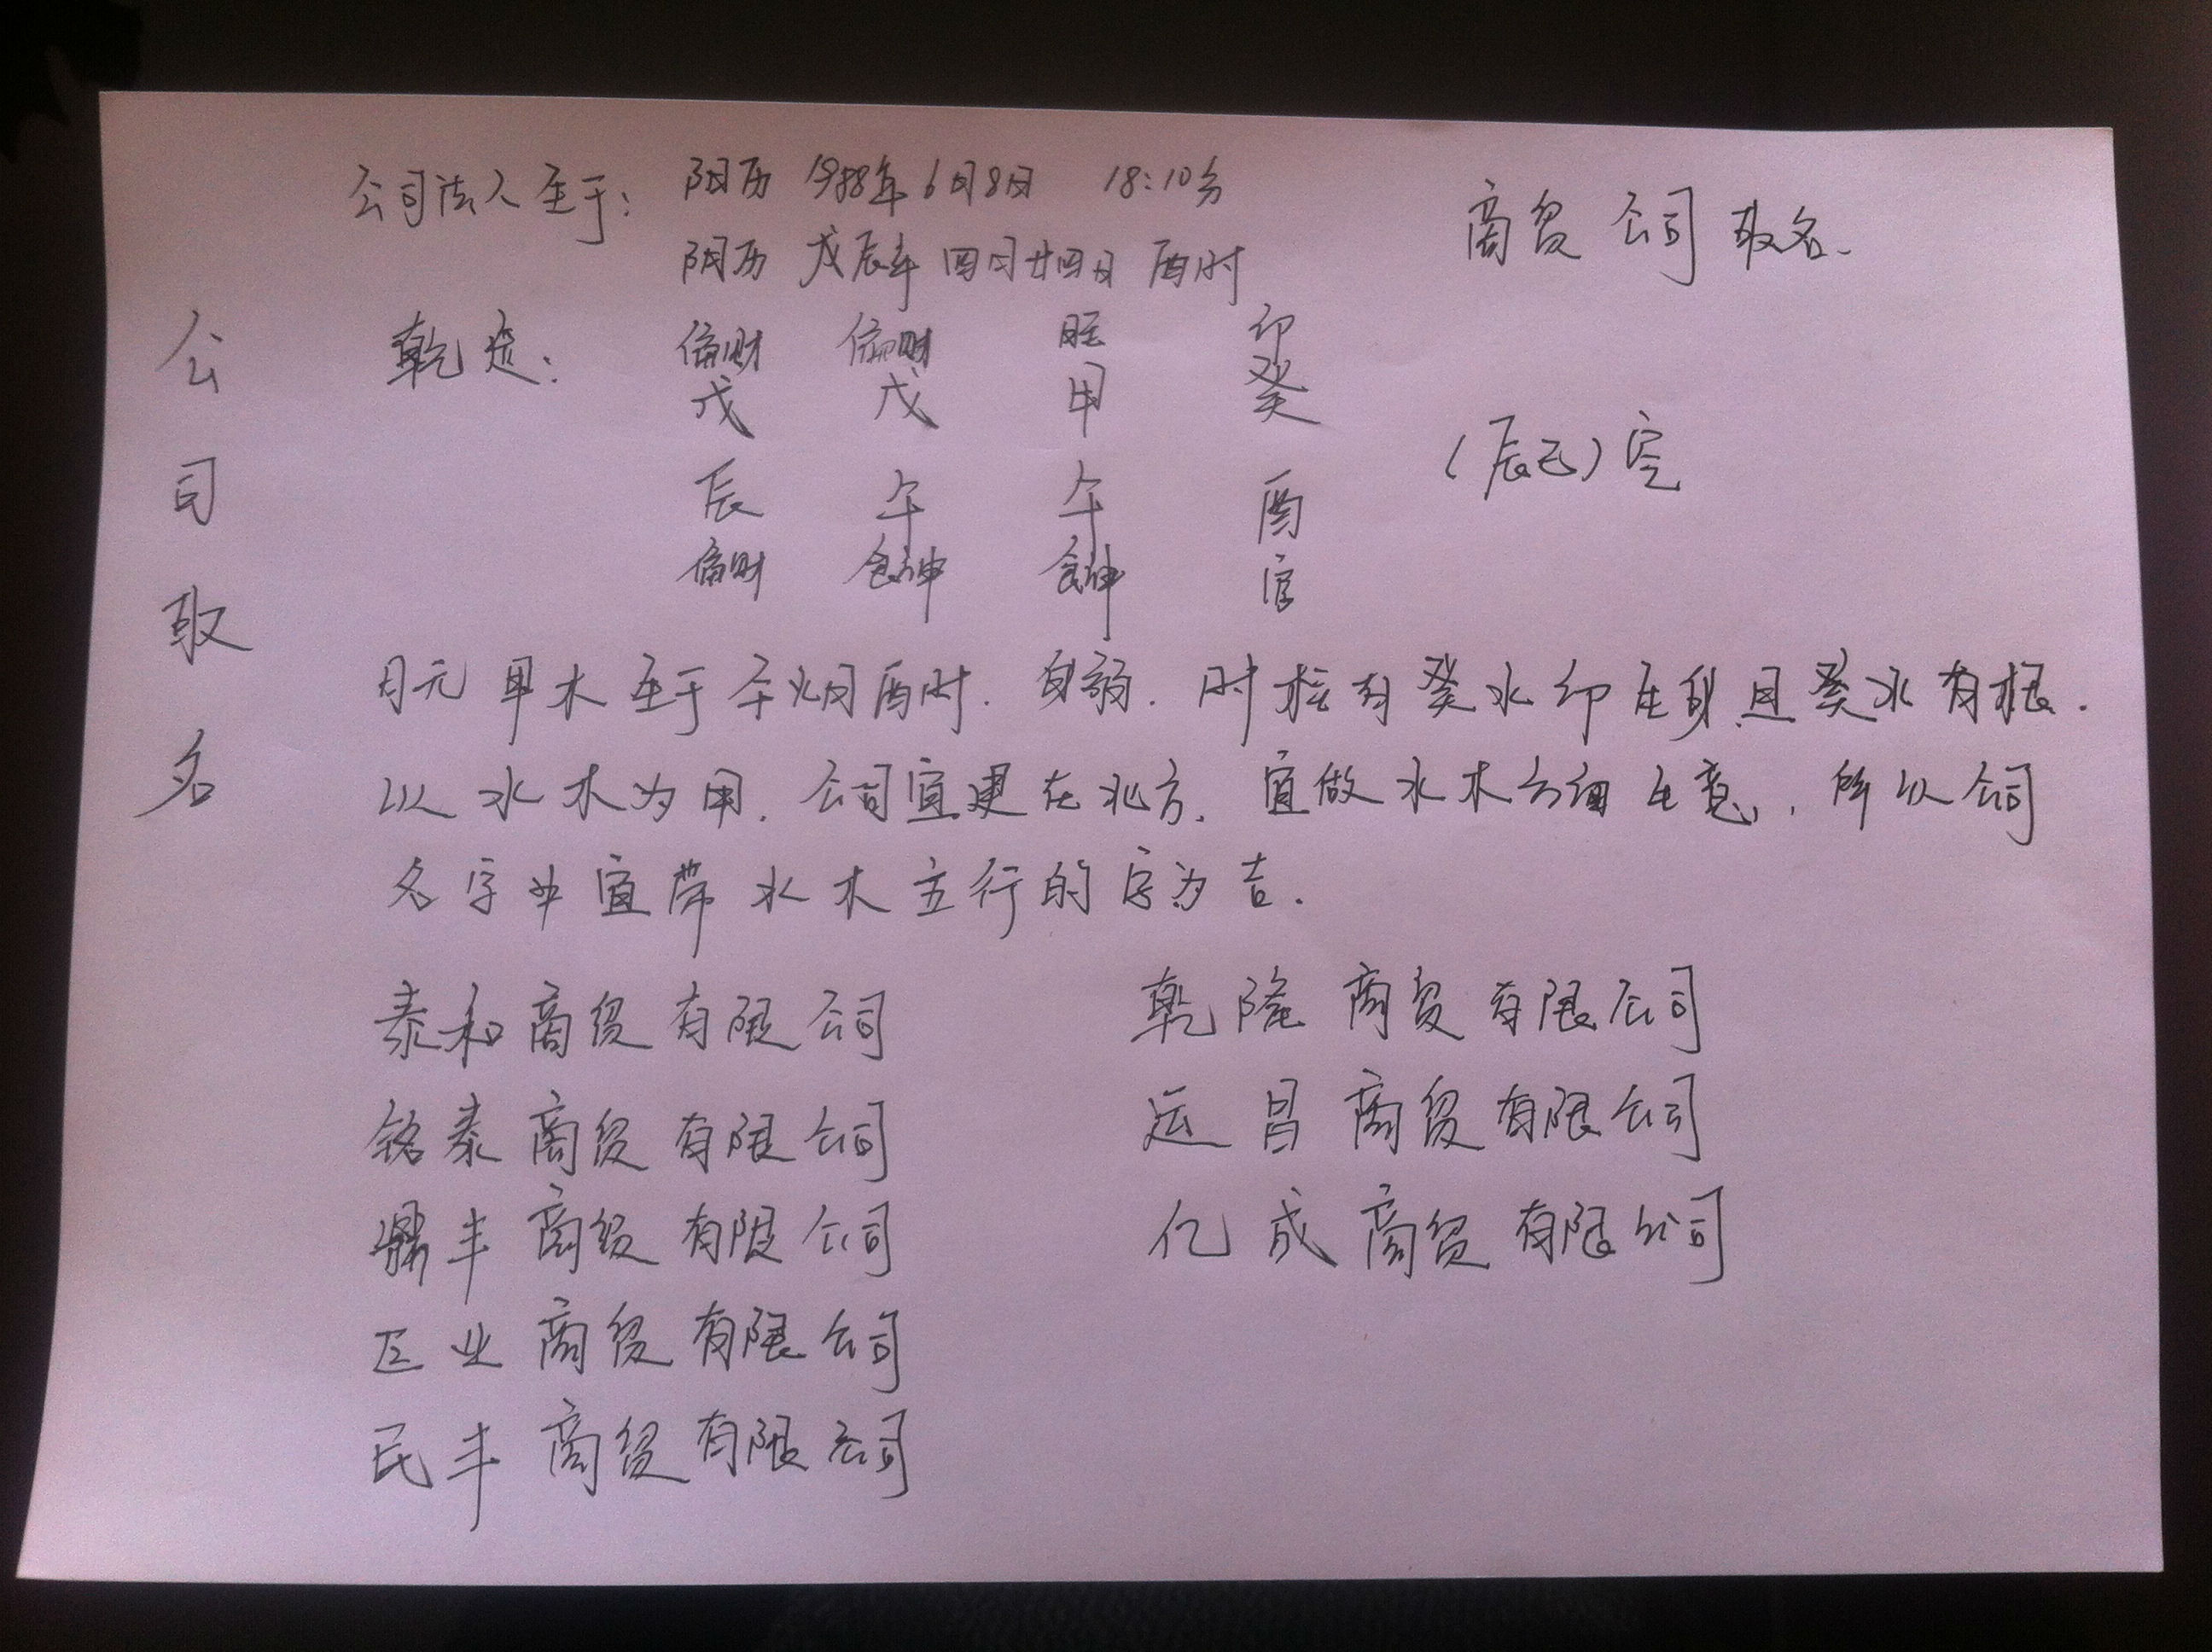 公司取名
公司法人生于: 阳历 1988年6月8日 18:10分
阴历 戊辰年 四月廿四日 酉时
商贸公司取名.
乾造: 偏财 偏财 日主 印
戊 戊 甲 癸
辰 午 午 酉
(辰巳)空
偏财 食神 食神 官
日元甲木生于午火月酉时. 身弱. 时柱有癸水印生身且癸水有根.
以水木为用. 公司宜建在北方. 宜做水木方面生意, 所以公司
名字中宜带水木五行的字为吉.
泰和商贸有限公司
铭泰商贸有限公司
鼎丰商贸有限公司
巨业商贸有限公司
民丰商贸有限公司
乾隆商贸有限公司
运昌商贸有限公司
亿成商贸有限公司